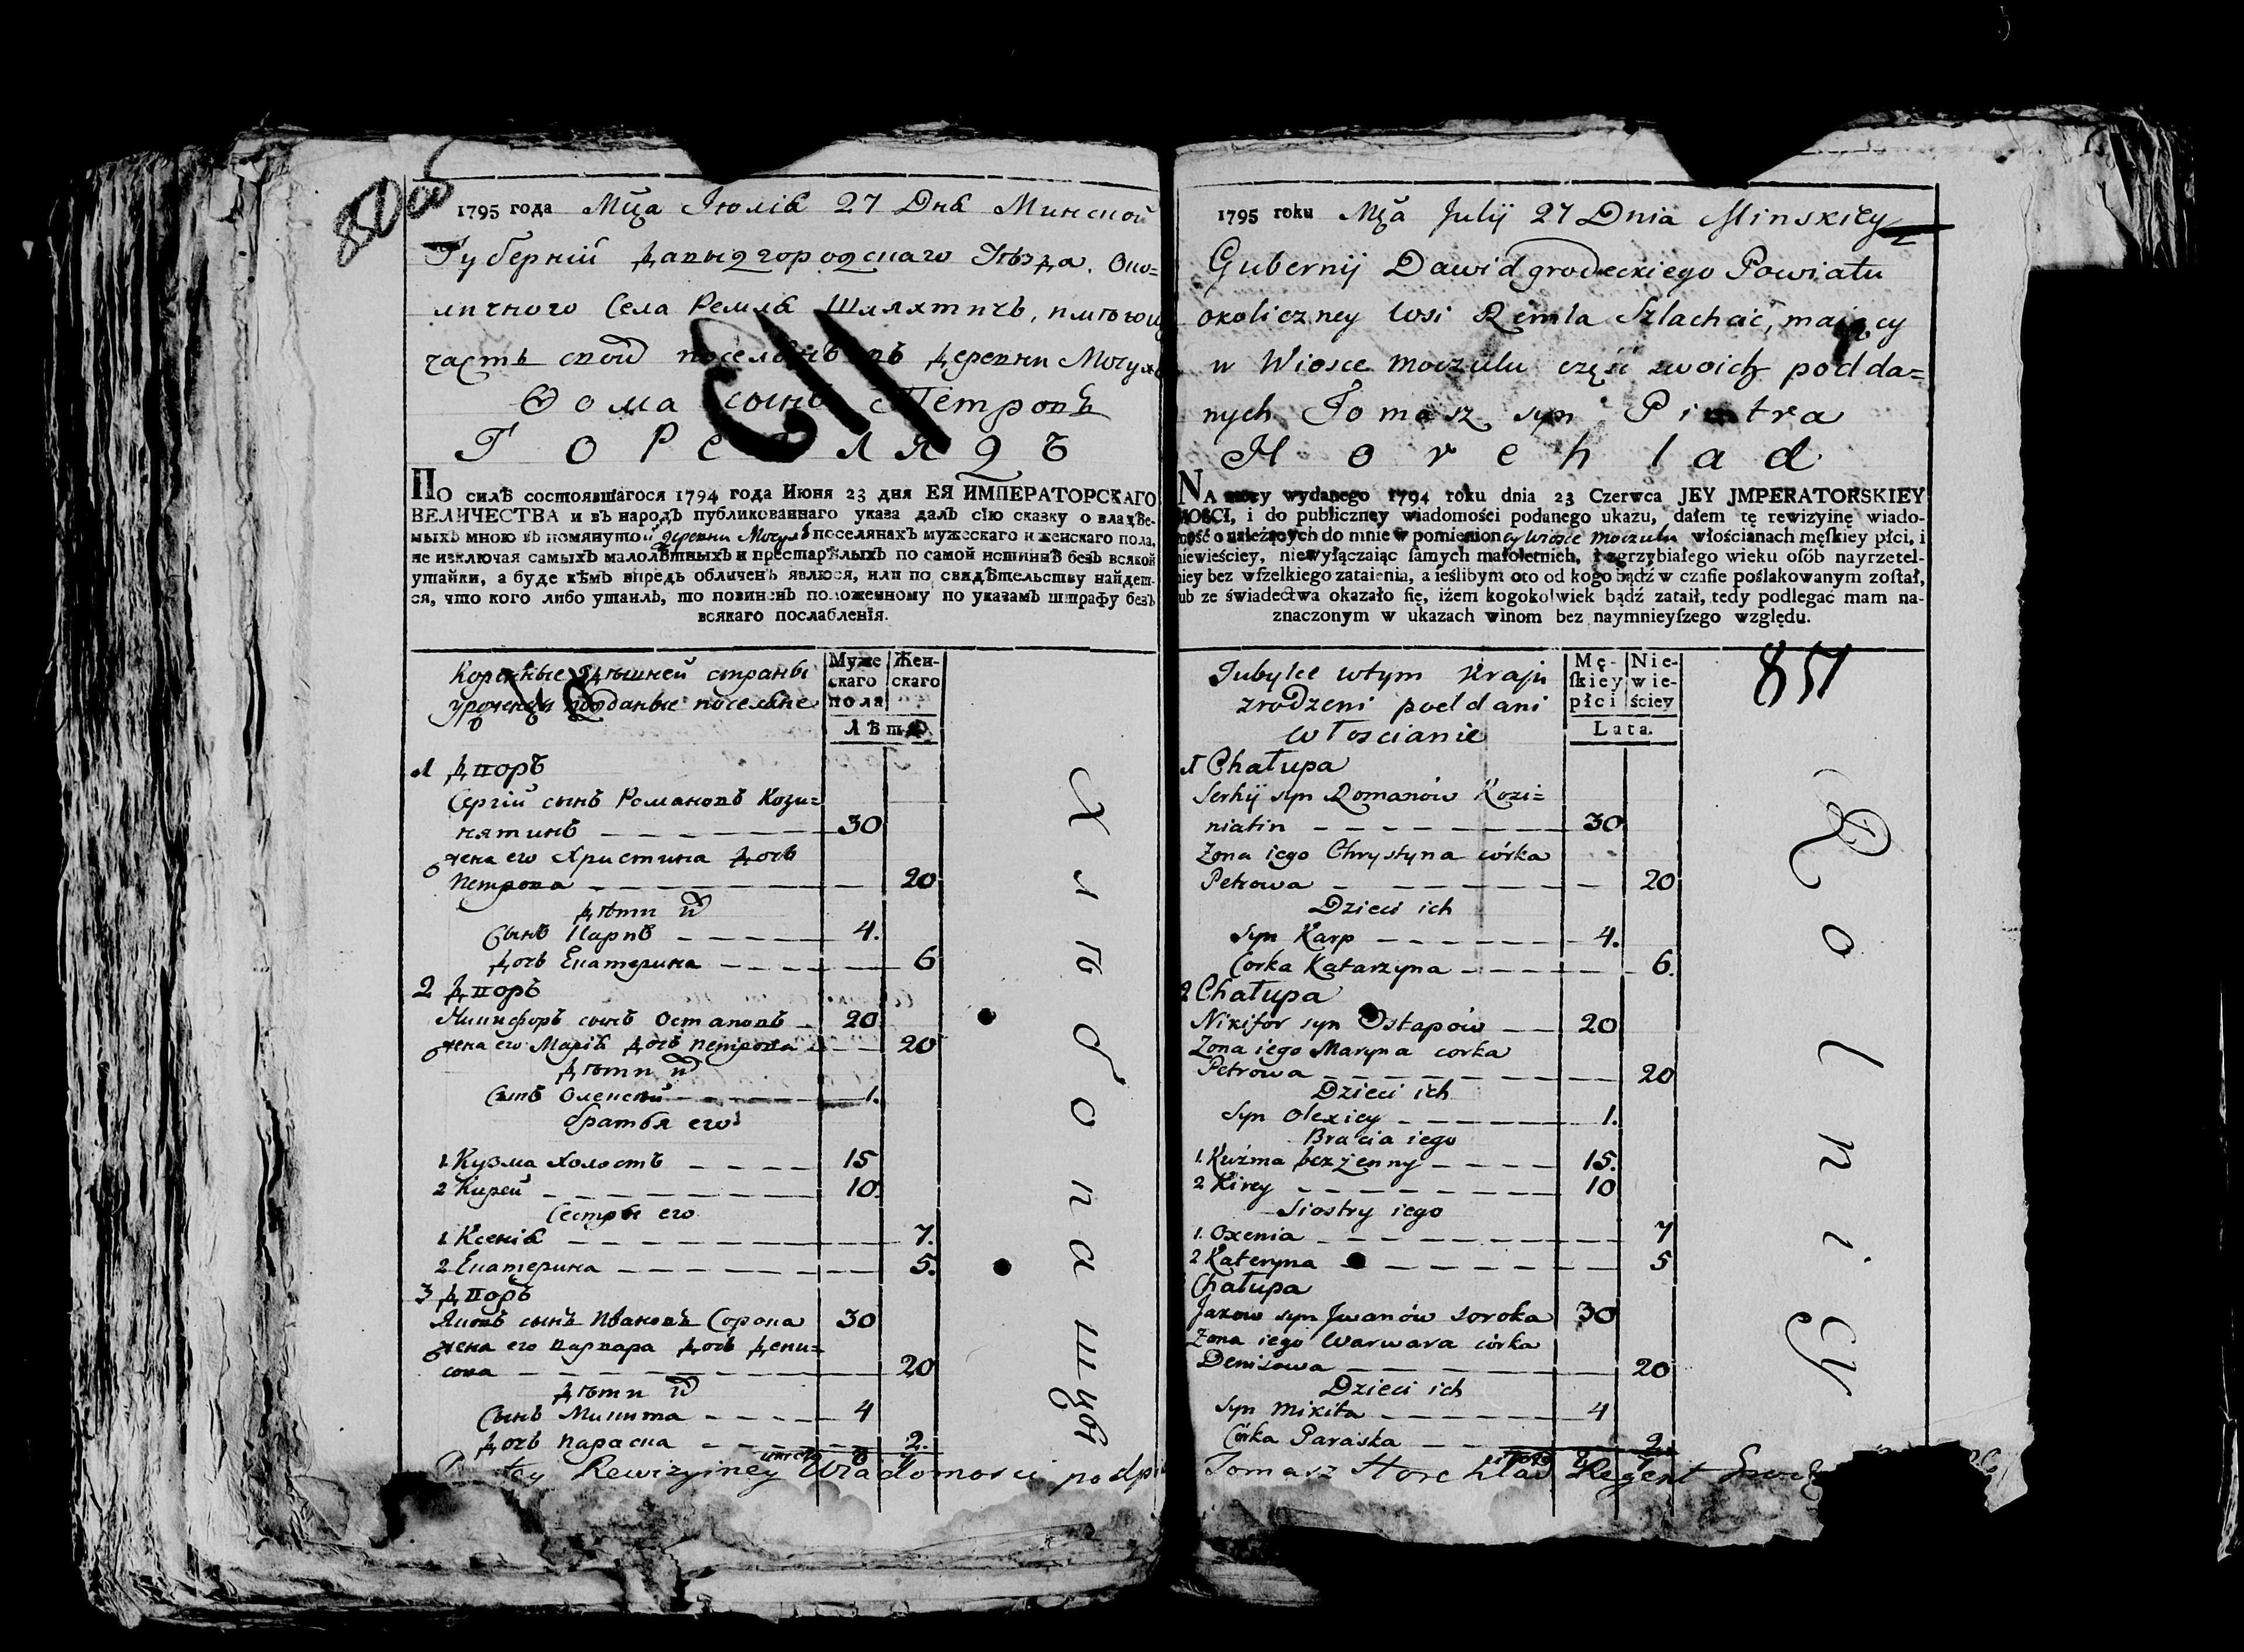 1795 года Мца Іюлія 27 Дня Минской
Губерніи Давыдгородскаго Уѣзда, Око=
личного Села Ремля Шляхтичъ, имѣющ
часть своихъ поселянъ въ деревни Мочул
Ѳома сынъ Петровъ
ГОРЕГЛЯДЪ
ПО силѣ состоявшагося 1794 года Июня 23 дня ЕЯ ИМПЕРАТОРСКАГО
ВЕЛИЧЕСТВА и въ народъ публикованнаго указа далъ сїю сказку о владѣе-
мыхъ мною въ помянутой деревни Мочулѣ поселянахъ мужескаго и женскаго пола,
не изключая самыхъ малолѣтныхъ и престарѣлыхъ по самой истиннѣ безъ всякой
утайки, а буде кѣмъ впредь обличенъ явлюся, или по свидѣтельству найдет-
ся, что кого либо утаилъ, то повиненъ положенному по указамъ штрафу безъ
всякаго послабленїя.
Коренные здѣшней страны
урожденыи подданые поселяне
Муже
скаго
пола
Жен-
скаго
Лѣта
1 Дворъ
Сергій сынъ Романовъ Кози=
нятинъ 30
жена его Христина дочь
Петрова 20
дѣти ихъ
Сынъ Карпъ 4.
дочь Екатерина 6
2 Дворъ
Никифоръ сынъ Остаповъ 20
жена его Марія дочь Петрова 20
дѣти ихъ
Сынъ Олексѣй 1.
братья его
1. Кузма холостъ 15
2 Кирей 10.
Сестры его
1. Ксенія 7.
2 Екатерина 5.
3 Дворъ
Яковъ сынъ Ивановъ Сорока 30
жена его Варвара дочь Дени=
сова 20
дѣти ихъ
Сынъ Микита 4
дочь Параска 2.
Хлѣбопашцы
tey Rewizyiney Wiadomosci podpi
1795 roku Mca Julij 27 Dnia Minskiey
Gubernij Dawidgrodeckiego Powiatu
okoliczney wsi Remla Szlachcic, maiący
w Wiosce Moczulu część swoich podda=
nych Tomasz syn Piotra
Horehlad
NA mocy wydanego 1794 roku dnia 23 Czerwca JEY JMPERATORSKIEY
MOŚCI, i do publiczney wiadomości podanego ukazu, dałem tę rewizyinę wiado-
mość o należących do mnie w pomienioney wiosce Moczulu włościanach męſkiey płci, i
niewieściey, niewyłączaiąc ſamych małoletnich, i zgrzybiałego wieku oſób nayrzetel-
niey bez wſzelkiego zataienia, a ieślibym oto od kogo bądź w czaſie poślakowanym zoſtał,
lub ze świadectwa okazało ſię, iżem kogokolwiek bądź zataił, tedy podlegać mam na-
znaczonym w ukazach winom bez naymnieyſzego względu.
Tubylce wtym Kraju
zrodzeni poddani
włoscianie
Mę-
ſkiey
płci
Nie-
wie-
ściey
Lata.
851
1 Chałupa
Serhij syn Romanów Kozi=
niatin 30
Zona iego Chrystyna córka
Petrowa 20
Dzieci ich
Syn Karp 4.
Corka Katarzyna 6.
2 Chałupa
Nikifor syn Ostapów 20
Zona iego Maryna corka
Petrowa 20
Dzieci ich
Syn Olexiey 1.
Bracia iego
1. Kuźma bezżenny 15.
2 Kirey 10
Siostry iego
1. Oxenia 7
2 Kateryna 5
Chałupa
Jakow syn Jwanów Soroka 30
Zona iego Warwara córka
Denisowa 20
Dzieci ich
Syn Mikita 4
Córka Paraska 2.
Rolnicy
Tomasz Horehlad Regent